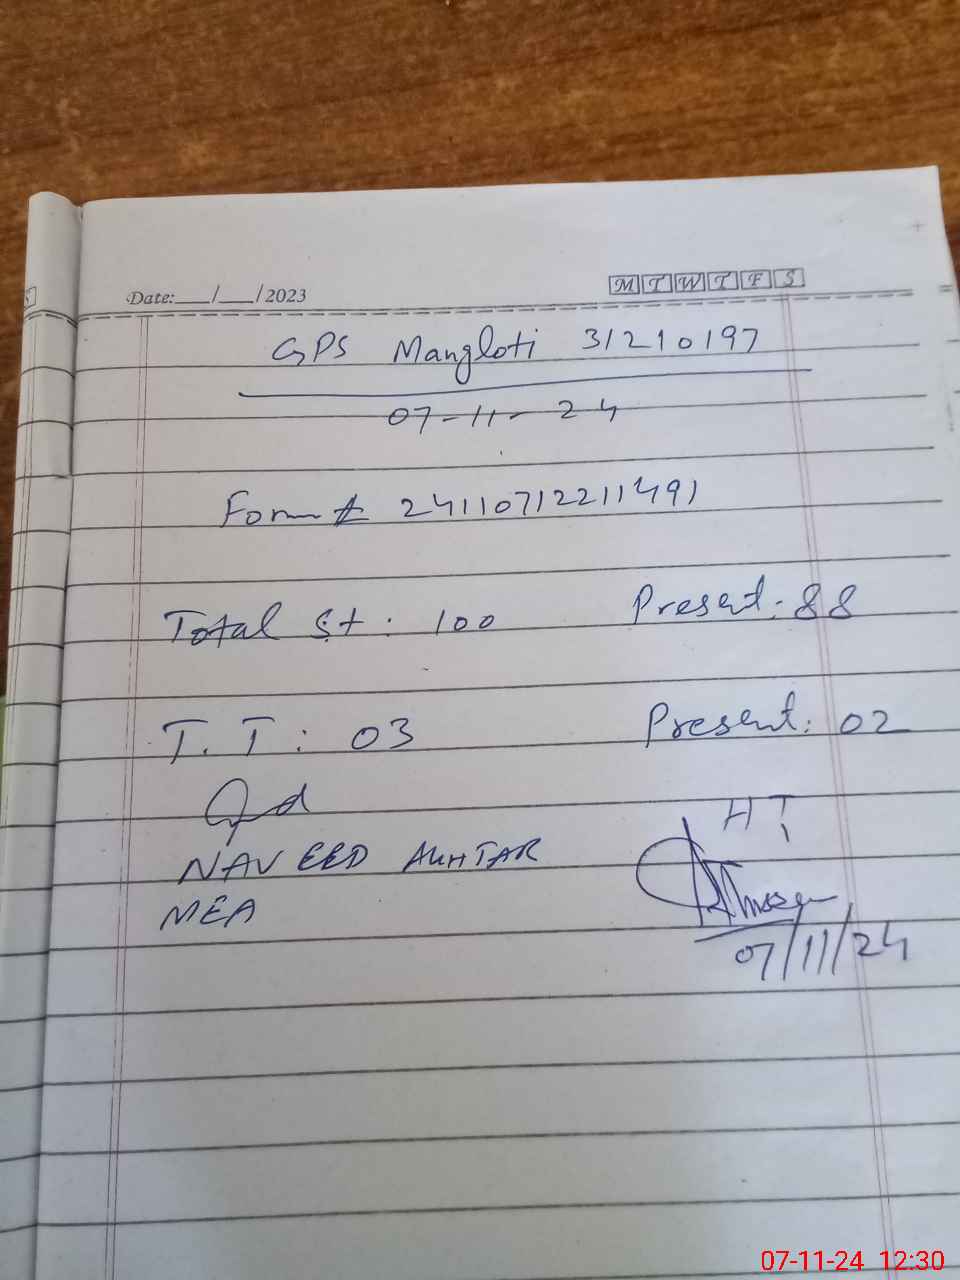 Date:___/___/2023 M T W T F S
GPS Mangloti 31210197
07-11-24
Form # 24110712211491
Total St: 100 Present: 88
T.T: 03 Present: 02
HT
NAVEED AKHTAR
MEA
07/11/24
07-11-24 12:30